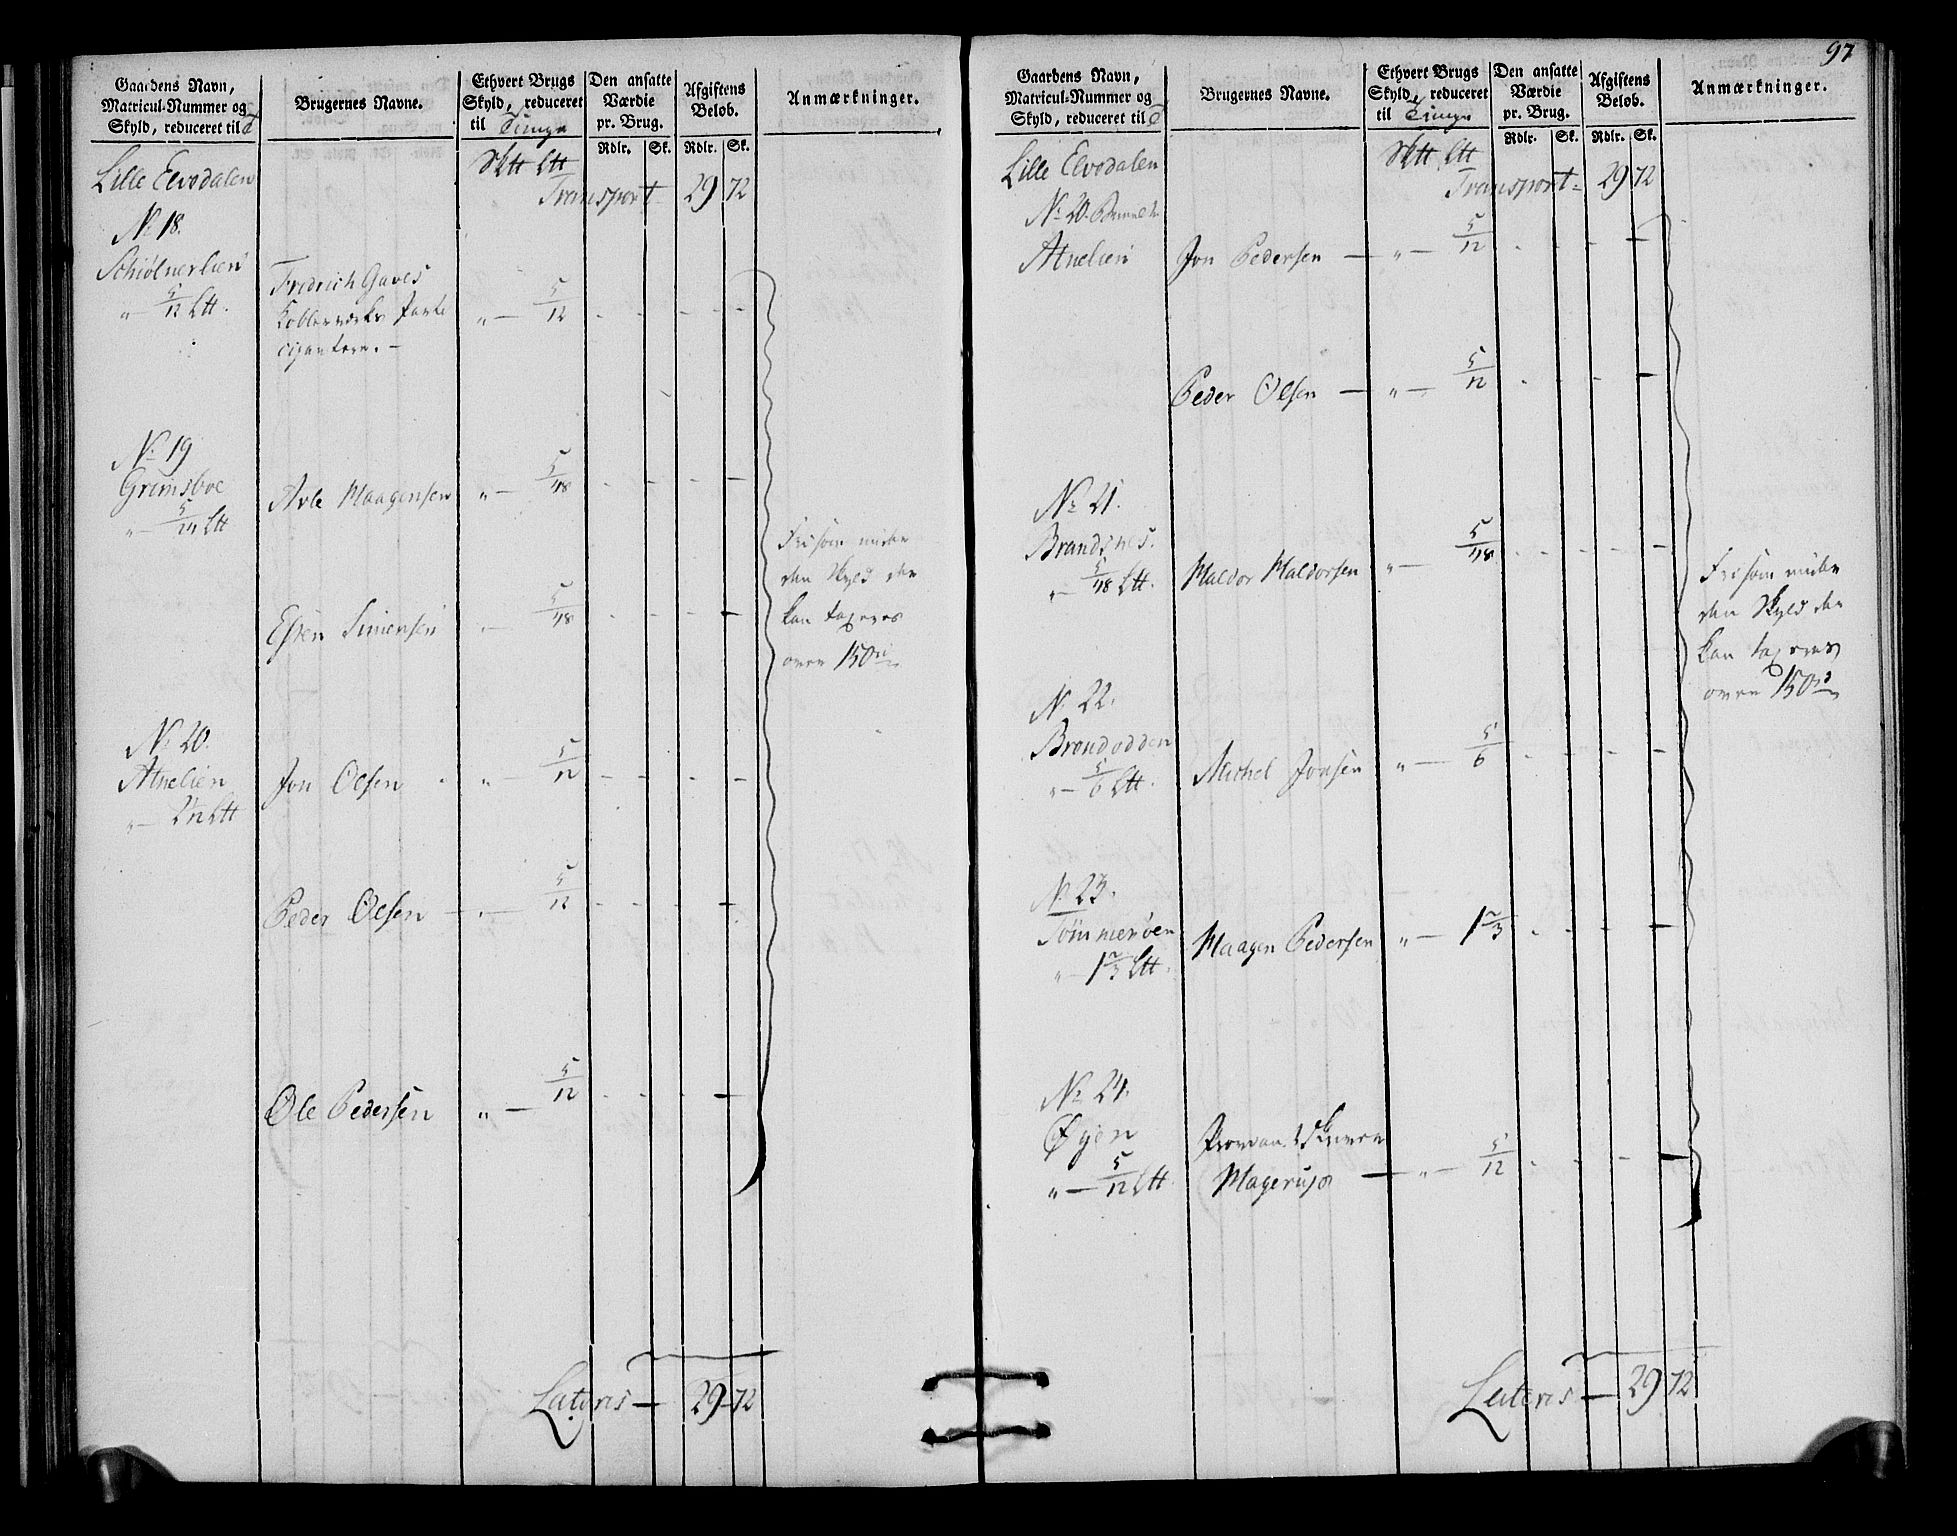 Gaardens Navn,
Matricul-Nummer og
Skyld, reduceret til
Brugernes Navne.
Ethvert Brugs
Skyld, reduceret
til Tunge
Den ansatte
Værdie
pr. Brug.
Rdlr. Sk.
Afgiftens
Beløb.
Rdlr. Sk.
Anmærkninger.
Lille Elvedalen
Transport 29 72
No 18.
Schiølnerlien
" — 5/12 Ltt.
Fredrich Gaves
Kobberværks Parti
cipantere. —
" — 5/12 - - - -
No 19
Grimsboe
" — 5/24 Ltt
Arle Haagensen " — 5/48 - - - -
Esten Simensen " — 5/48 - - - -
Fri som under
den Skyld der
kan taxeres
over 150
No 20.
Atnelien
Jon Olsen " — 5/12 - - - -
Peder Olsen — " — 5/12 - - - -
Ole Pedersen " — 5/12 - - - -
Lateris — 29 72
97
Gaardens Navn,
Matricul-Nummer og
Skyld, reduceret til
Brugernes Navne.
Ethvert Brugs
Skyld, reduceret
til Tunge
Den ansatte
Værdie
pr. Brug.
Rdlr. Sk.
Afgiftens
Beløb.
Rdlr. Sk.
Anmærkninger.
Lille Elvedalen
Transport 29 72
No 20.
Atnelien
Jon Pedersen — " — 5/12 - - - -
Peder Olsen — " — 5/12 - - - -
No 21.
Brandsnes.
" — 5/48 Ltt.
Haldor Haldorsen " — 5/48 - - - -
Fri som under
den Skyld der
kan taxeres
over 150
No 22.
Brendodden
" — 5/6 Ltt.
Michel Jonsen " — 5/6 - - - -
No 23.
Tømmerøen
" — 1 2/3 Ltt.
Haagen Pedersen " — 1 2/3 - - - -
No 24.
Øyen
" — 5/12 Ltt
— " — 5/12 - - - -
Lateris — 29 72